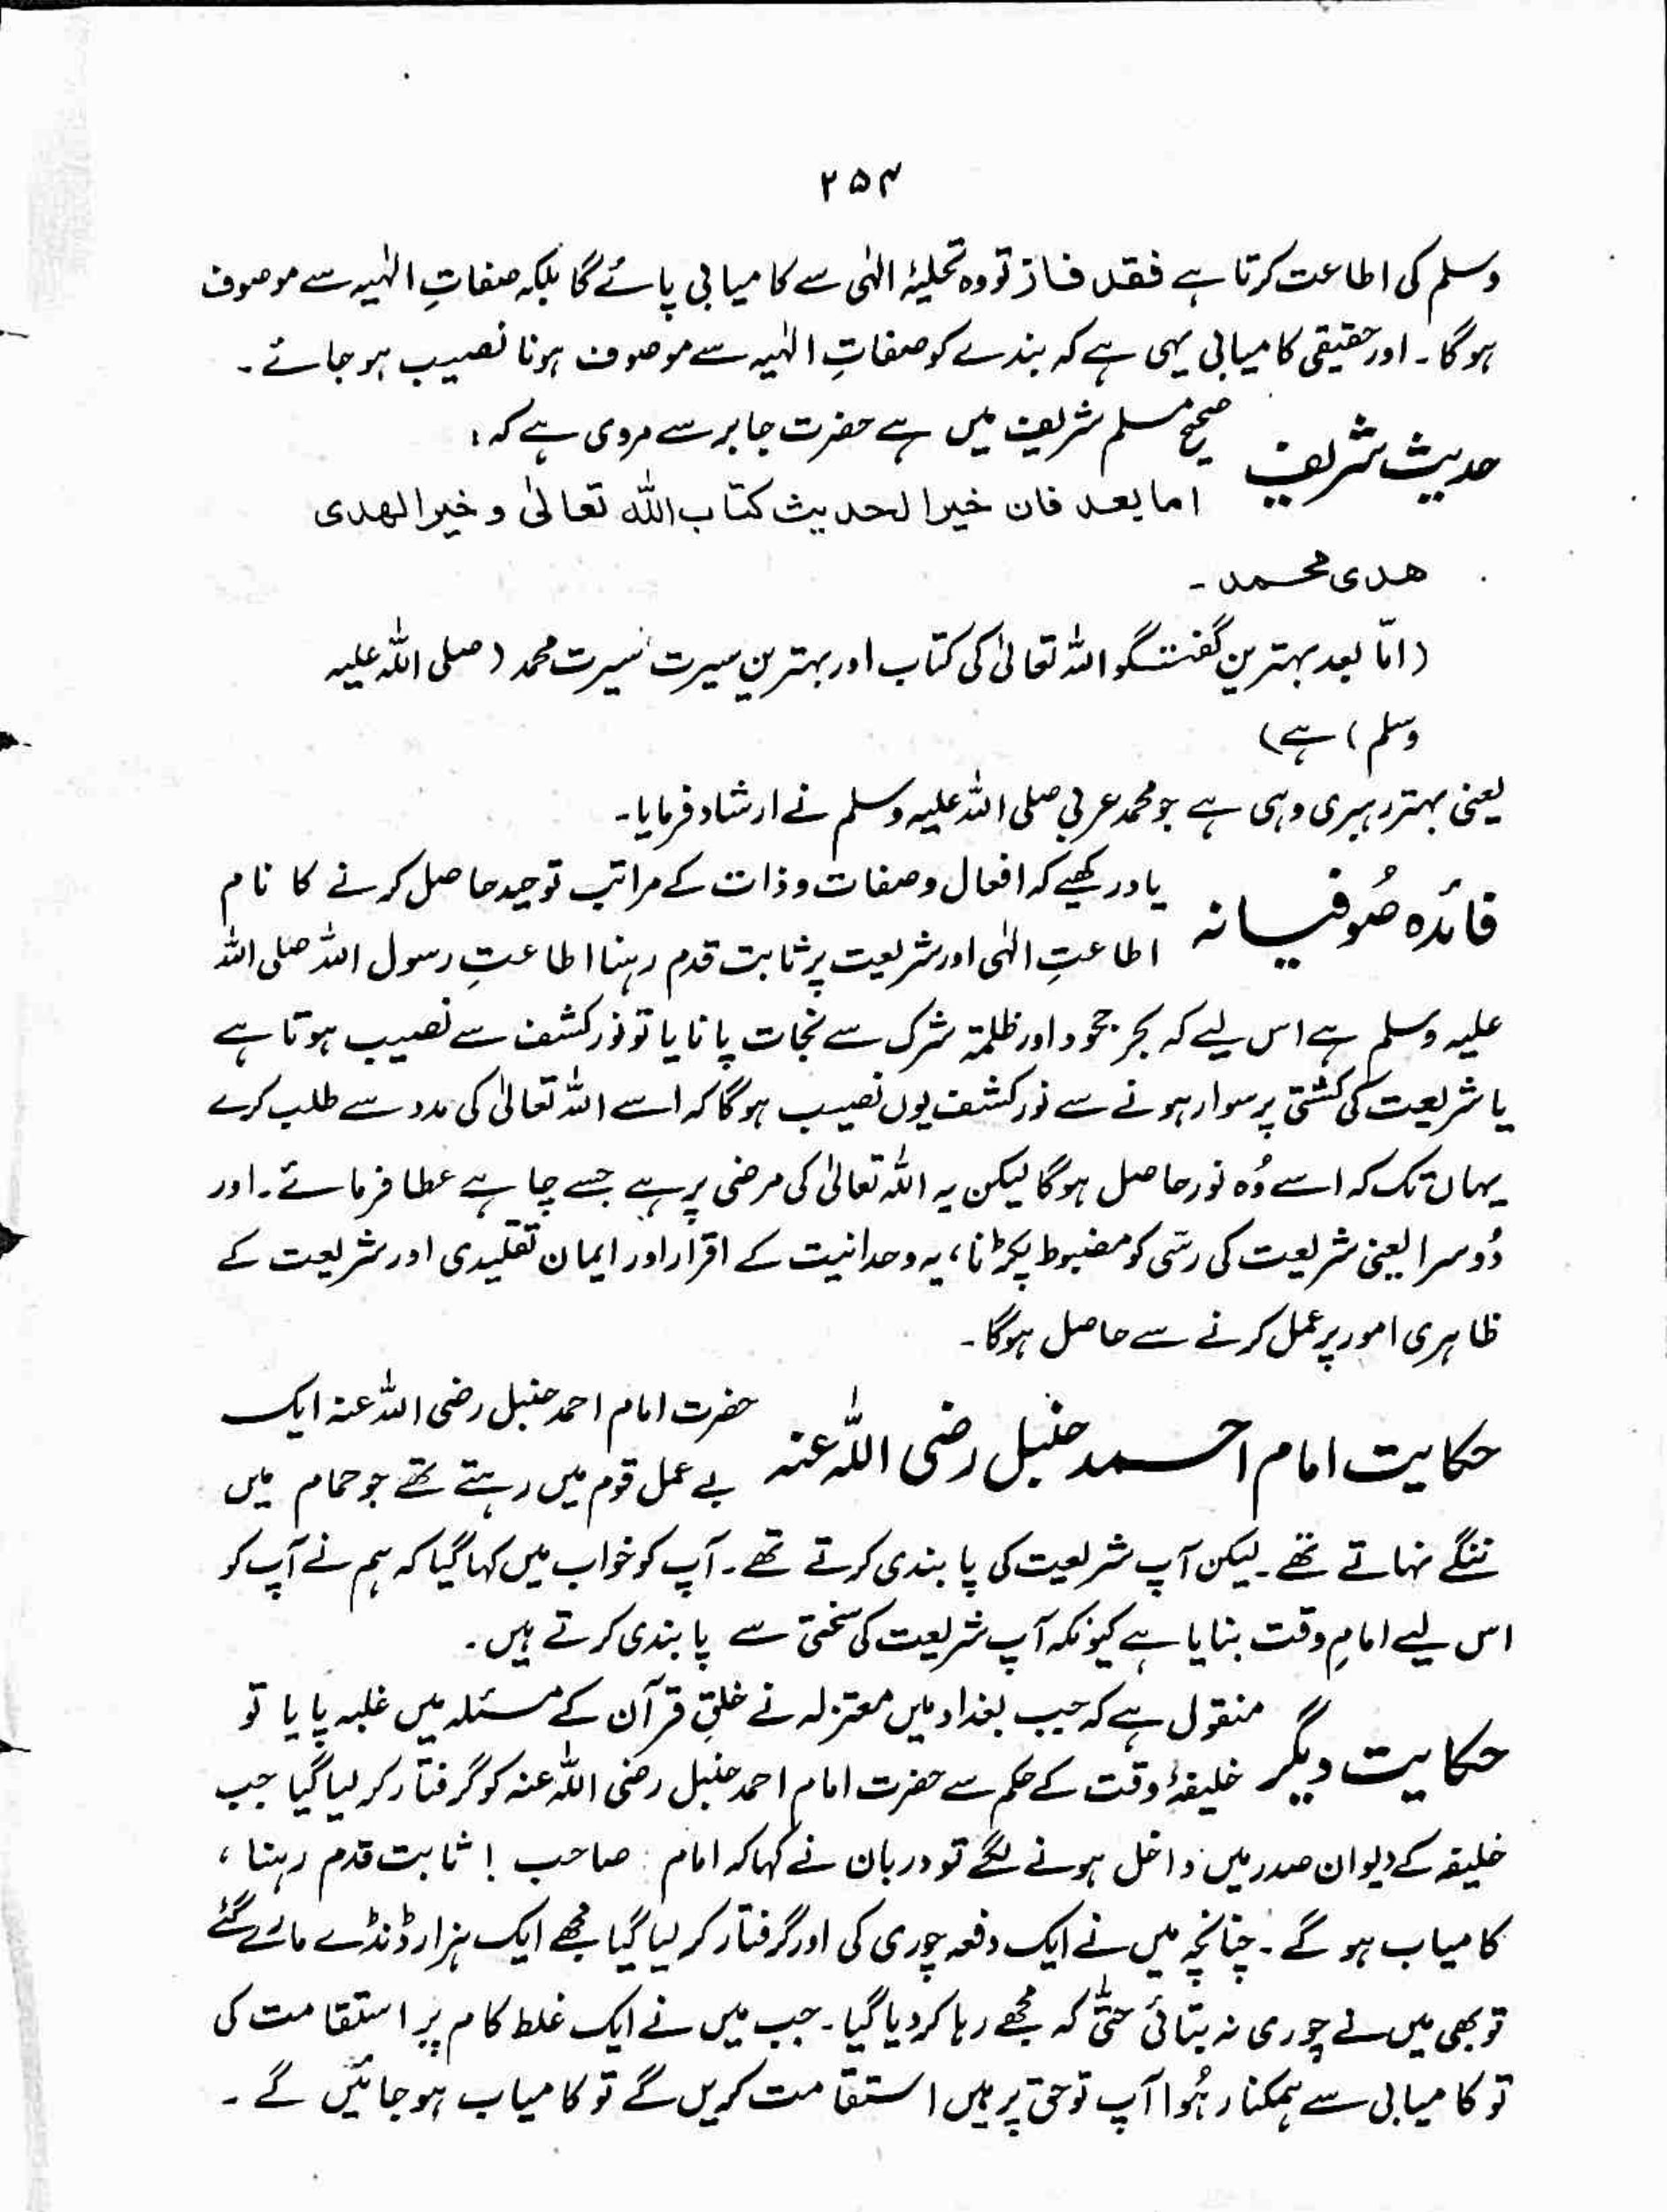 ۲۵۴
وسلم کی اطاعت کرتا ہے فقد فاز تو وہ تحلیۂ الٰہی سے کامیابی پائے گا بلکہ صفاتِ الٰہیہ سے موصوف
ہوگا۔ اور حقیقی کامیابی یہی ہے کہ بندے کو صفاتِ الٰہیہ سے موصوف ہونا نصیب ہو جائے۔
حدیث شریف صحیح مسلم شریف میں ہے حضرت جابر سے مروی ہے کہ:
اما بعد فان خیر الحدیث کتاب اللہ تعالیٰ و خیر الھدی
ھدی محمد۔
(امّا بعد بہترین گفتگو اللہ تعالیٰ کی کتاب اور بہترین سیرت سیرت محمد (صلی اللہ علیہ
وسلم) ہے)
یعنی بہتر رہبری وہی ہے جو محمد عربی صلی اللہ علیہ وسلم نے ارشاد فرمایا۔
فائدہ صُوفیانہ یاد رکھیے کہ افعال و صفات و ذات کے مراتب توحید حاصل کرنے کا نام
اطاعتِ الٰہی اور شریعت پر ثابت قدم رہنا اطاعتِ رسول اللہ صلی اللہ
علیہ وسلم ہے اس لیے کہ بحر جحود اور ظلمۃ شرک سے نجات پانا یا تو نور کشف سے نصیب ہوتا ہے
یا شریعت کی کشتی پر سوار ہونے سے نور کشف یوں نصیب ہوگا کہ اسے اللہ تعالیٰ کی مدد سے طلب کرے
یہاں تک کہ اسے وُہ نور حاصل ہوگا لیکن یہ اللہ تعالیٰ کی مرضی پر ہے جسے چاہے عطا فرمائے۔ اور
دُوسرا یعنی شریعت کی رسّی کو مضبوط پکڑنا، یہ وحدانیت کے اقرار اور ایمان تقلیدی اور شریعت کے
ظاہری امور پر عمل کرنے سے حاصل ہوگا۔
حکایت امام احمد حنبل رضی اللہ عنہ حضرت امام احمد حنبل رضی اللہ عنہ ایک
بے عمل قوم میں رہتے تھے جو حمام میں
ننگے نہاتے تھے۔ لیکن آپ شریعت کی پابندی کرتے تھے۔ آپ کو خواب میں کہا گیا کہ ہم نے آپ کو
اس لیے امامِ وقت بنایا ہے کیونکہ آپ شریعت کی سختی سے پابندی کرتے ہیں۔
حکایت دیگر منقول ہے کہ جب بغداد میں معتزلہ نے خلقِ قرآن کے مسئلہ میں غلبہ پایا تو
خلیفۂ وقت کے حکم سے حضرت امام احمد حنبل رضی اللہ عنہ کو گرفتار کر لیا گیا جب
خلیفہ کے دیوان صدر میں داخل ہونے لگے تو دربان نے کہا کہ امام صاحب! ثابت قدم رہنا،
کامیاب ہو گے۔ چنانچہ میں نے ایک دفعہ چوری کی اور گرفتار کر لیا گیا مجھے ایک ہزار ڈنڈے مارے گئے
تو بھی میں نے چوری نہ بتائی حتّٰی کہ مجھے رہا کر دیا گیا۔ جب میں نے ایک غلط کام پر استقامت کی
تو کامیابی سے ہمکنار ہُوا آپ تو حق پر ہیں استقامت کریں گے تو کامیاب ہو جائیں گے۔